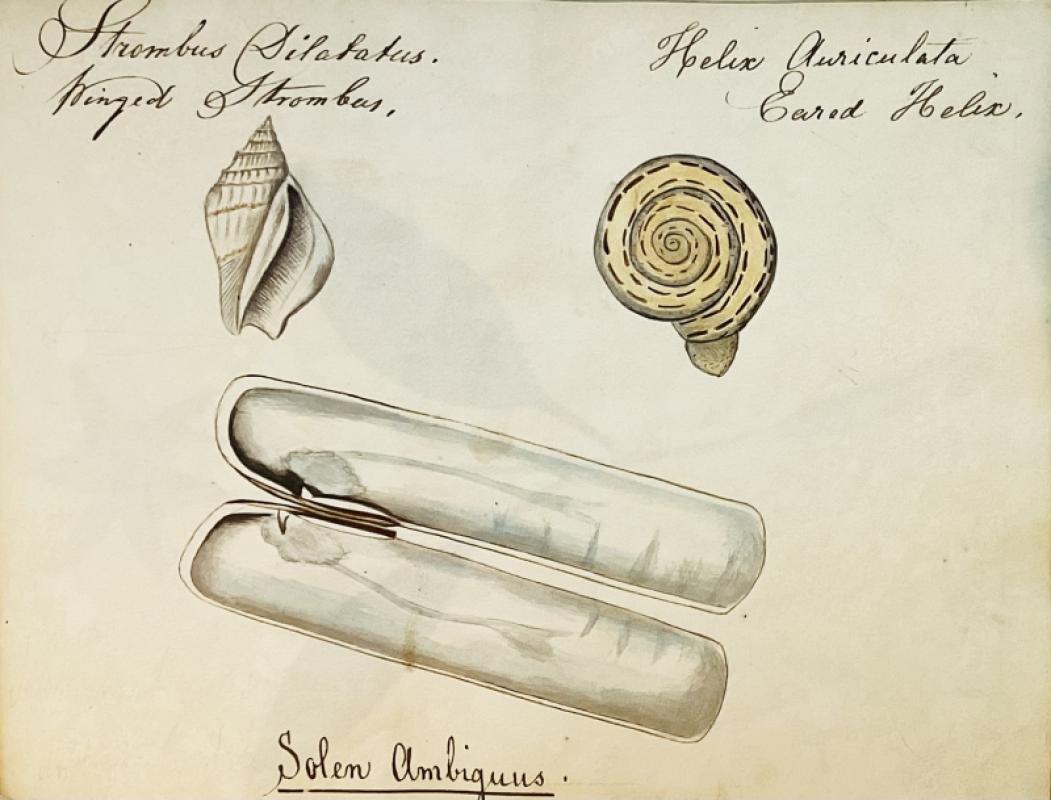 Strombus Dilatatus.
Winged Strombus.
Helix Auriculata
Eared Helix.
Solen Ambiguus.